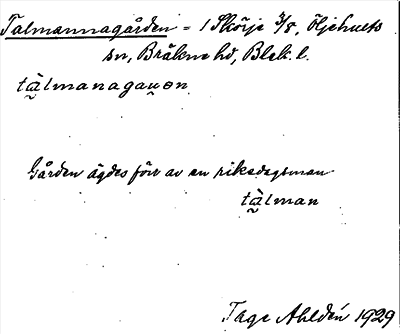 Talmannagården = 1 Skörje 3/8, Öljehults
sn, Bräkne hd, Blek. l.
tà̰lmanagaṵen
Gården ägdes förr av en riksdagsman
tà̰lman
Tage Ahldén 1929